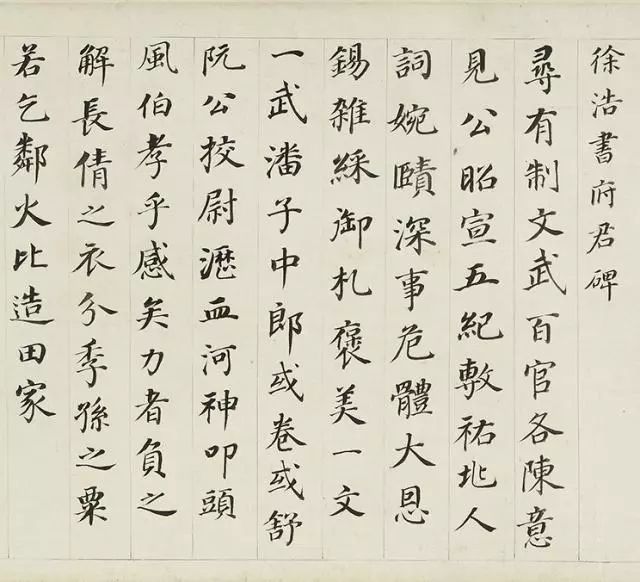 徐浩書府君碑
尋有制文武百官各陳意
見公昭宣五紀敷祐圠人
詞婉賾深事危體大恩
錫雜綵御札褒美一文
一武潘子中郎或卷或舒
阮公挍尉瀝血河神叩頭
風伯孝乎感矣力者負之
解長倩之衣分季孫之粟
若乞鄰火比造田家